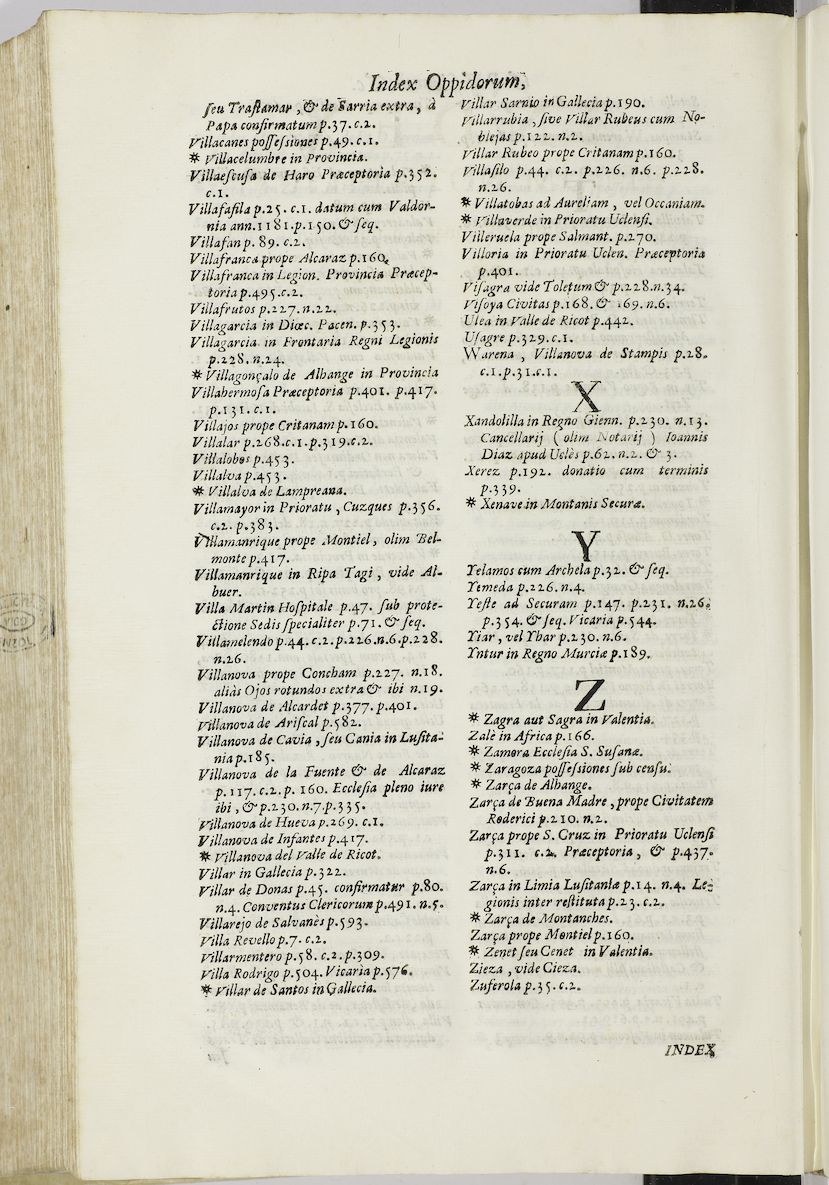 Index Oppidorum,
ſeu Traſtamar, & de Sarria extra, à
Papa confirmatum p.37.c.2.
Villacanes poſſeſsiones p.49.c.1.
* Villacelumbre in Provincia.
Villaeſcuſa de Haro Præceptoria p.352.
c.1.
Villafafila p.25.c.1. datum cum Valdor-
nia ann.1181.p.150.& ſeq.
Villafan p.89.c.2.
Villafranca prope Alcaraz p.160.
Villafranca in Legion. Provincia Præcep-
toria p.495.c.2.
Villafrutos p.227.n.22.
Villagarcia in Diœc. Pacen. p.353.
Villagarcia in Frontaria Regni Legionis
p.228. n.24.
* Villagonçalo de Alhange in Provincia
Villahermoſa Præceptoria p.401. p.417.
p.131.c.1.
Villajos prope Critanam p.160.
Villalar p.268.c.1.p.319.c.2.
Villalobos p.453.
Villalva p.453.
* Villalva de Lampreana.
Villamayor in Prioratu, Cuzques p.356.
c.2. p.383.
Villamanrique prope Montiel, olim Bel-
monte p.417.
Villamanrique in Ripa Tagi, vide Al-
buer.
Villa Martin Hoſpitale p.47. ſub prote-
ctione Sedis ſpecialiter p.71. & ſeq.
Villamelendo p.44.c.2.p.226.n.6.p.228.
n.26.
Villanova prope Concham p.227. n.18.
aliàs Ojos rotundos extra & ibi n.19.
Villanova de Alcardet p.377. p.401.
Villanova de Ariſcal p.582.
Villanova de Cavia, ſeu Cania in Luſita-
nia p.185.
Villanova de la Fuente & de Alcaraz
p.117.c.2.p. 160. Eccleſia pleno iure
ibi, & p.230.n.7.p.335.
Villanova de Hueva p.269. c.1.
Villanova de Infantes p.417.
* Villanova del Valle de Ricot.
Villar in Gallecia p.322.
Villar de Donas p.45. confirmatur p.80.
n.4. Conventus Clericorum p.491.n.5.
Villarejo de Salvanès p.593.
Villa Revello p.7. c.2.
Villarmentero p.58. c.2.p.309.
Villa Rodrigo p.504. Vicaria p.576.
* Villar de Santos in Gallecia.
Villar Sarnio in Gallecia p.190.
Villarrubia, ſive Villar Rubeus cum No-
blejas p.122.n.2.
Villar Rubeo prope Critanam p.160.
Villaſilo p.44. c.2. p.226. n.6. p.228.
n.26.
* Villatobas ad Aureliam, vel Occaniam.
* Villaverde in Prioratu Uclenſi.
Villeruela prope Salmant. p.270.
Villoria in Prioratu Uclen. Præceptoria
p.401.
Viſagra vide Toletum & p.228.n.34.
Viſoya Civitas p.168. & 169.n.6.
Ulea in Valle de Ricot p.442.
Uſagre p.329.c.1.
Warena, Villanova de Stampis p.28.
c.1.p.31.c.1.
X
Xandolilla in Regno Gienn. p.230. n.13.
Cancellarij (olim Notarij) Ioannis
Diaz apud Uclès p.62.n.2. & 3.
Xerez p.192. donatio cum terminis
p.339.
* Xenave in Montanis Securæ.
Y
Yelamos cum Archela p.32. & ſeq.
Yemeda p.226.n.4.
Yeſte ad Securam p.147. p.231. n.26.
p.354. & ſeq. Vicaria p.544.
Yiar, vel Ybar p.230.n.6.
Yntur in Regno Murciæ p.189.
Z
* Zagra aut Sagra in Valentia.
Zalè in Africa p.166.
* Zamora Eccleſia S. Suſanæ.
* Zaragoza poſſeſsiones ſub cenſu.
* Zarça de Alhange.
Zarça de Buena Madre, prope Civitatem
Roderici p.210. n.2.
Zarça prope S. Cruz in Prioratu Uclenſi
p.311. c.2. Præceptoria, & p.437.
n.6.
Zarça in Limia Luſitaniæ p.14. n.4. Le-
gionis inter reſtituta p.23. c.2.
* Zarça de Montanches.
Zarça prope Montiel p.160.
* Zenet ſeu Cenet in Valentia.
Zieza, vide Cieza.
Zuferola p.35.c.2.
INDEX